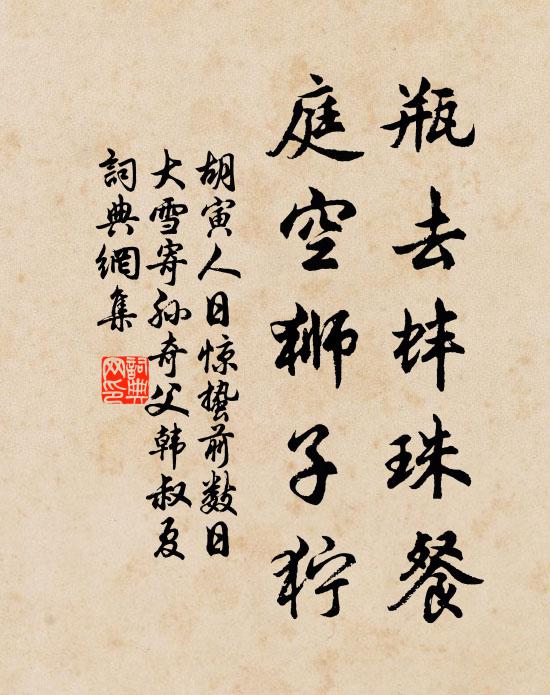 瓶去蚌珠餐
庭空狮子狞
胡寅人日惊蛰前数日
大雪寄孙奇父韩叔夏
詞典網集
詞典
网印